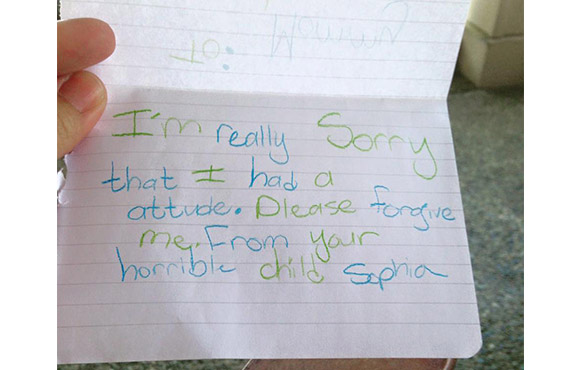 To:
I'm really Sorry
that I had a
attude. Please forgive
me. From your
horrible child Sophia